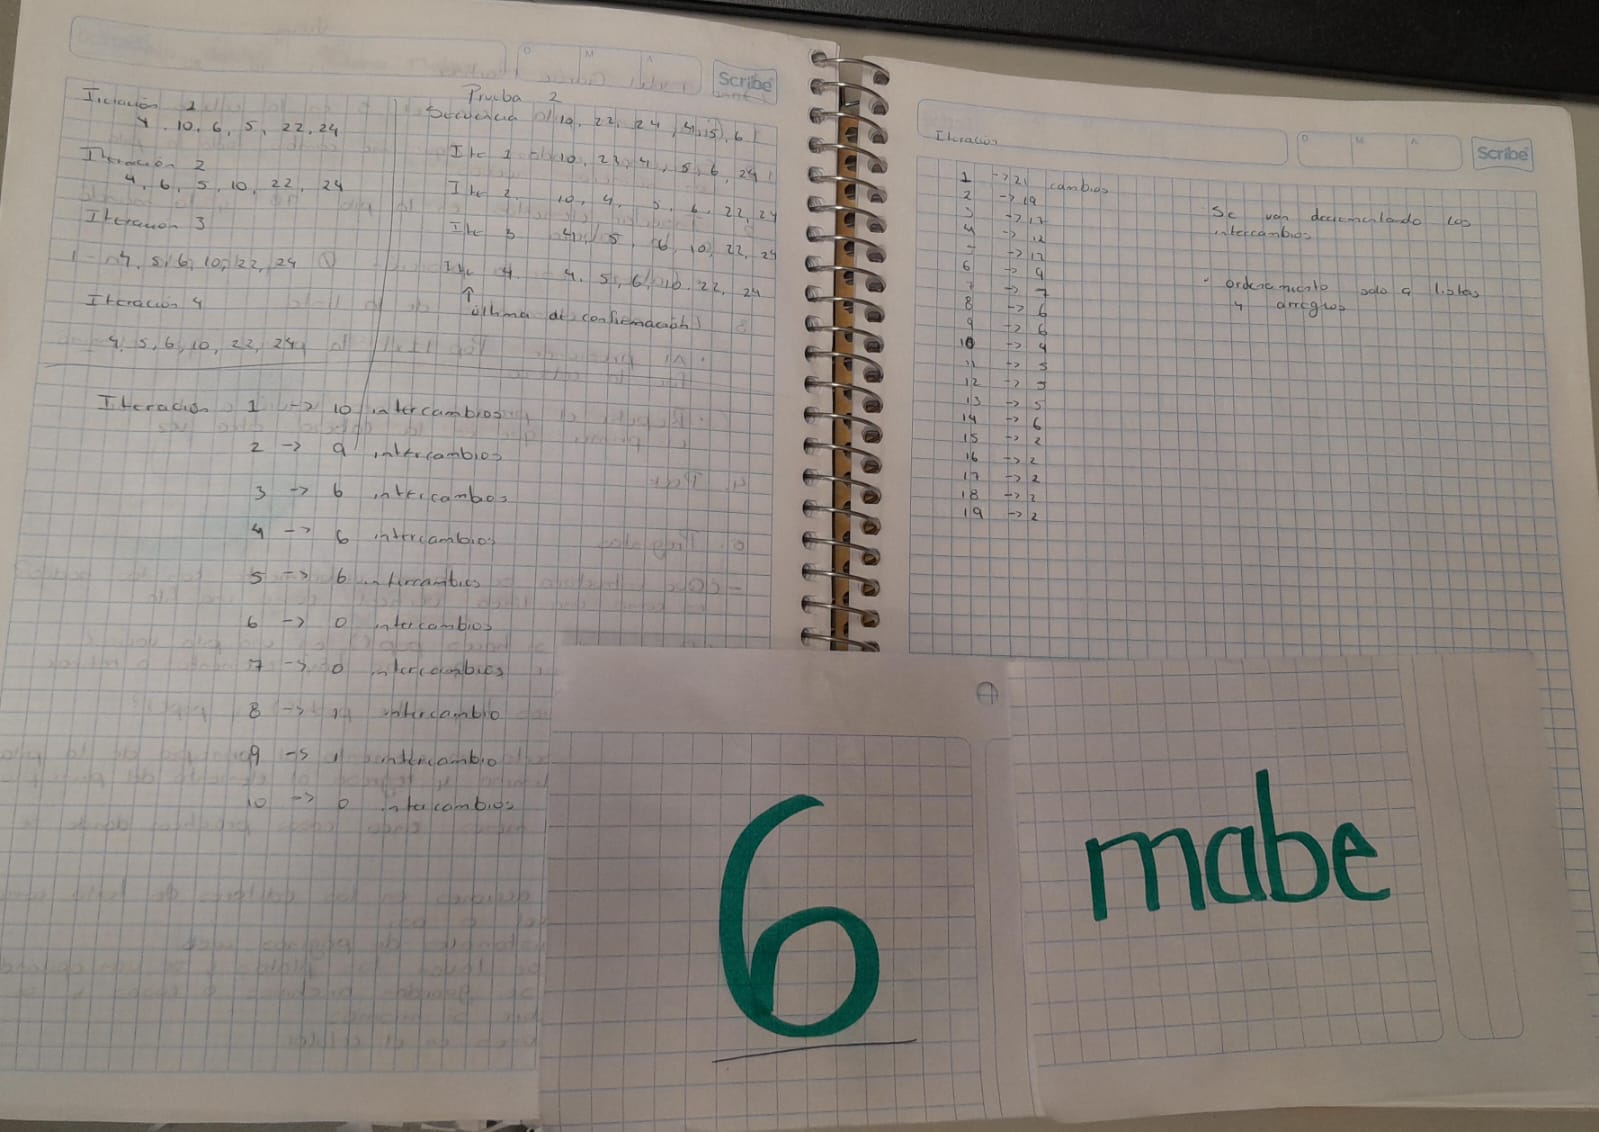 Scribe
Iteración 1
4, 10, 6, 5, 22, 24
Iteración 2
4, 6, 5, 10, 22, 24
Iteracion 3
4, 5, 6, 10, 22, 24
Iteración 4
4, 5, 6, 10, 22, 24
Prueba 2
Secuencia 10, 22, 24, 4, 5, 6
Ite 1 10, 23, 4, 5, 6, 24
Ite 2, 10, 4, 5, 6, 22, 24
Ite 3 4, 5, 6, 10, 22, 24
Ite 4. 4, 5, 6, 10, 22, 24
↑
última de confirmación
Iteración 1 -> 10 intercambios
2 -> 9 intercambios
3 -> 6 intercambios
4 -> 6 intercambios
5 -> 6 intercambios
6 -> 0 intercambios
7 -> 0 intercambios
8 -> 1 intercambio
9 -> 1 intercambio
10 -> 0 intercambios
D M A
Scribe
Iteración
1 -> 21 cambios
2 -> 19
3 -> 17
4 -> 12
-> 12
6 -> 9
7 -> 7
8 -> 6
9 -> 6
10 -> 4
11 -> 5
12 -> 5
13 -> 5
14 -> 6
15 -> 2
16 -> 2
17 -> 2
18 -> 2
19 -> 2
Se van decrementando los
intercambios
- ordenamiento solo a listas
y arreglos
6
mabe